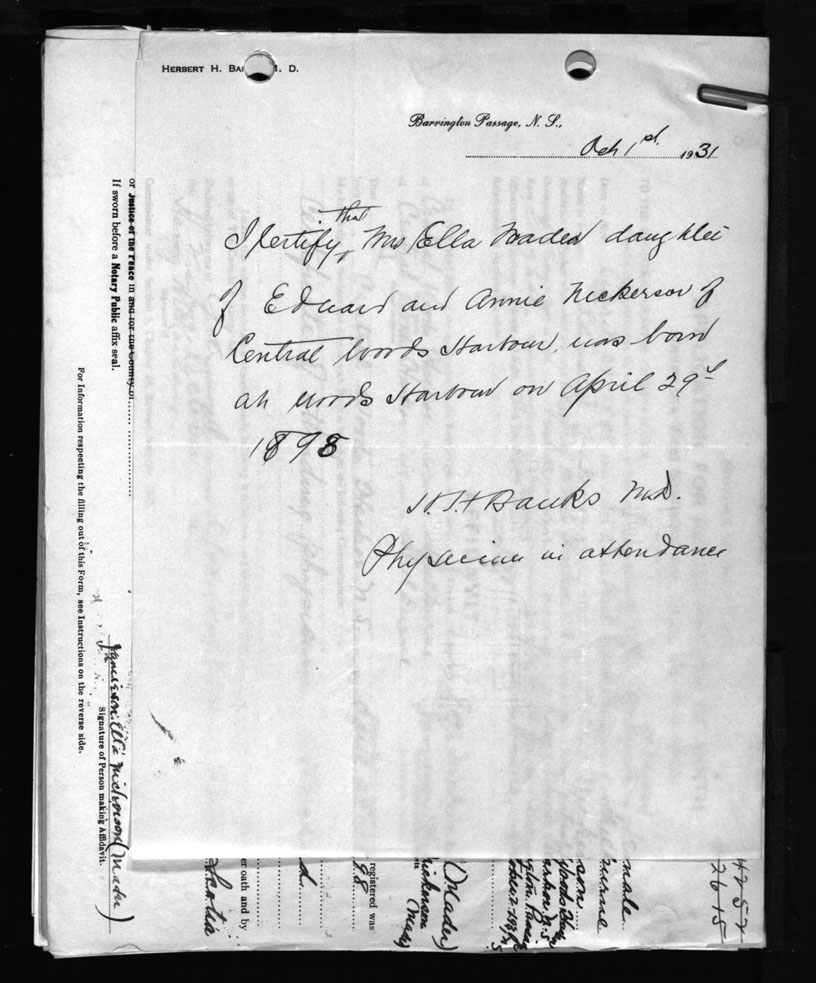 HERBERT H. BA M. D.
Barrington Passage, N. S.,
Oct 1st 1931
that
I certify, Mrs Ella Mader daughter
of Edward and Annie Nickerson of
Central Woods Harbour, was born
at Woods Harbour on April 29th
1898
H.H Banks M.D.
Physician in attendance
or Justice of the Peace in and for the County of
If sworn before a Notary Public affix seal.
For Information respecting the filling out of this Form, see Instructions on the reverse side.
Signature of Person making Affidavit.
(Mader)
male
registered was
98
d.
er oath and by
Scotia
(Mader)
4257
2615